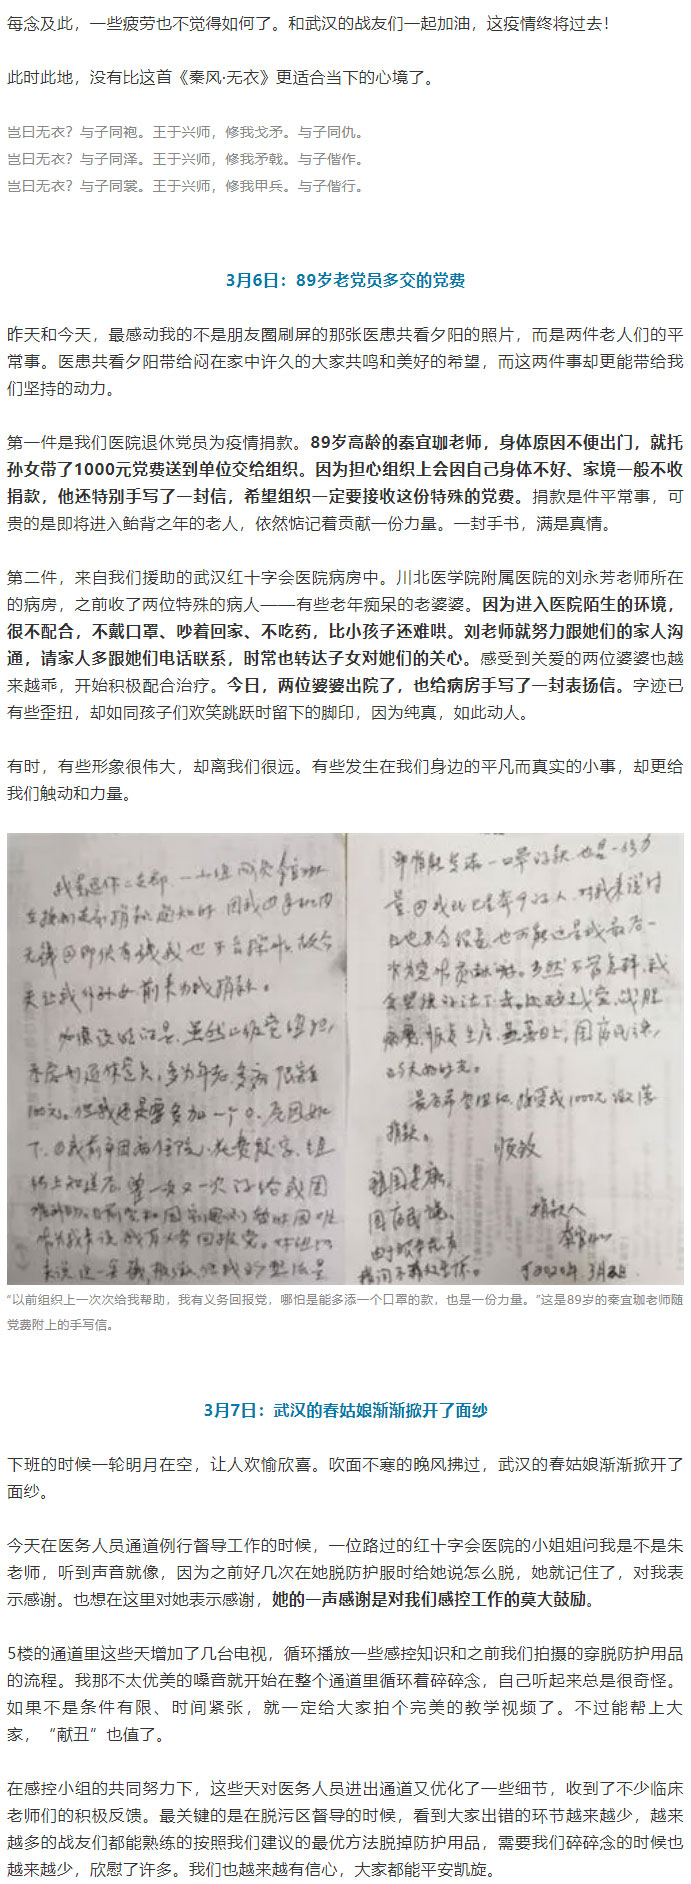 每念及此，一些疲劳也不觉得如何了。和武汉的战友们一起加油，这疫情终将过去！
此时此地，没有比这首《秦风·无衣》更适合当下的心境了。
岂曰无衣？与子同袍。王于兴师，修我戈矛。与子同仇。
岂曰无衣？与子同泽。王于兴师，修我矛戟。与子偕作。
岂曰无衣？与子同裳。王于兴师，修我甲兵。与子偕行。
3月6日：89岁老党员多交的党费
昨天和今天，最感动我的不是朋友圈刷屏的那张医患共看夕阳的照片，而是两件老人们的平
常事。医患共看夕阳带给闷在家中许久的大家共鸣和美好的希望，而这两件事却更能带给我
们坚持的动力。
第一件是我们医院退休党员为疫情捐款。89岁高龄的秦宜珈老师，身体原因不便出门，就托
孙女带了1000元党费送到单位交给组织。因为担心组织上会因自己身体不好、家境一般不收
捐款，他还特别手写了一封信，希望组织一定要接收这份特殊的党费。捐款是件平常事，可
贵的是即将进入鲐背之年的老人，依然惦记着贡献一份力量。一封手书，满是真情。
第二件，来自我们援助的武汉红十字会医院病房中。川北医学院附属医院的刘永芳老师所在
的病房，之前收了两位特殊的病人——有些老年痴呆的老婆婆。因为进入医院陌生的环境，
很不配合，不戴口罩、吵着回家、不吃药，比小孩子还难哄。刘老师就努力跟她们的家人沟
通，请家人多跟她们电话联系，时常也转达子女对她们的关心。感受到关爱的两位婆婆也越
来越乖，开始积极配合治疗。今日，两位婆婆出院了，也给病房手写了一封表扬信。字迹已
有些歪扭，却如同孩子们欢笑跳跃时留下的脚印，因为纯真，如此动人。
有时，有些形象很伟大，却离我们很远。有些发生在我们身边的平凡而真实的小事，却更给
我们触动和力量。
顺致
捐款人
“以前组织上一次次给我帮助，我有义务回报党，哪怕是能多添一个口罩的款，也是一份力量。”这是89岁的秦宜珈老师随
党费附上的手写信。
3月7日：武汉的春姑娘渐渐掀开了面纱
下班的时候一轮明月在空，让人欢愉欣喜。吹面不寒的晚风拂过，武汉的春姑娘渐渐掀开了
面纱。
今天在医务人员通道例行督导工作的时候，一位路过的红十字会医院的小姐姐问我是不是朱
老师，听到声音就像，因为之前好几次在她脱防护服时给她说怎么脱，她就记住了，对我表
示感谢。也想在这里对她表示感谢，她的一声感谢是对我们感控工作的莫大鼓励。
5楼的通道里这些天增加了几台电视，循环播放一些感控知识和之前我们拍摄的穿脱防护用品
的流程。我那不太优美的嗓音就开始在整个通道里循环着碎碎念，自己听起来总是很奇怪。
如果不是条件有限、时间紧张，就一定给大家拍个完美的教学视频了。不过能帮上大
家，“献丑”也值了。
在感控小组的共同努力下，这些天对医务人员进出通道又优化了一些细节，收到了不少临床
老师们的积极反馈。最关键的是在脱污区督导的时候，看到大家出错的环节越来越少，越来
越多的战友们都能熟练的按照我们建议的最优方法脱掉防护用品，需要我们碎碎念的时候也
越来越少，欣慰了许多。我们也越来越有信心，大家都能平安凯旋。